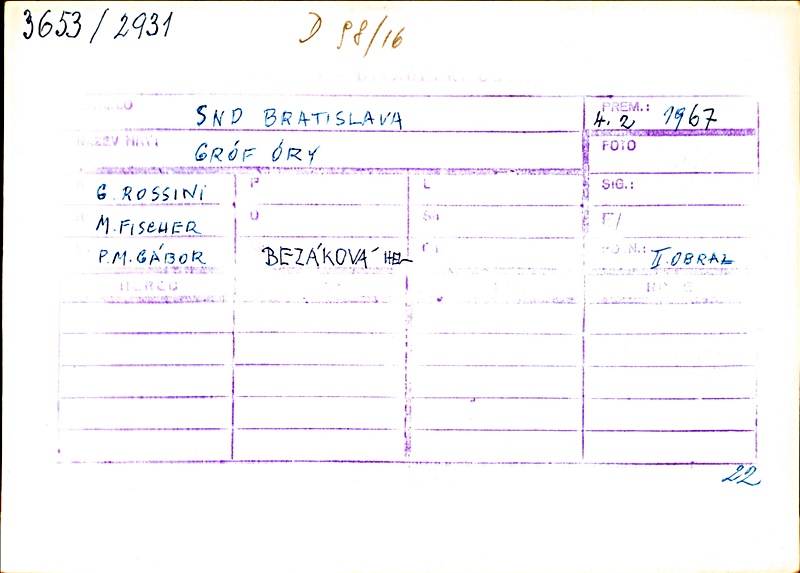 3653/2931
D 98/16
SND BRATISLAVA
PREM.:
4. 2 1967
NÁZEV HRY
GRÓF ÓRY
FOTO
G. ROSSINI
P
L
SIG.:
M. FISCHER
U
P.M. GÁBOR
BEZÁKOVÁ HEL
II. OBRAZ
22